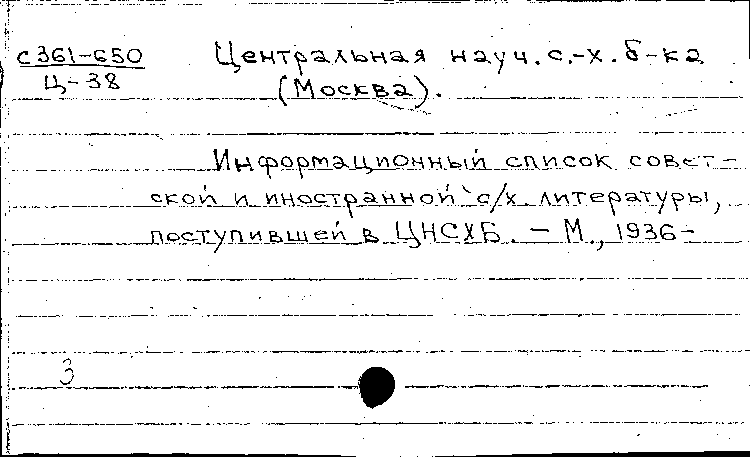 с361-650 Центральная науч. с.-х. б-ка
Ц-38 (Москва).
Информационный список совет-
ской и иностранной с/х. литературы,
поступившей в ЦНСХБ. - М., 1936-
3